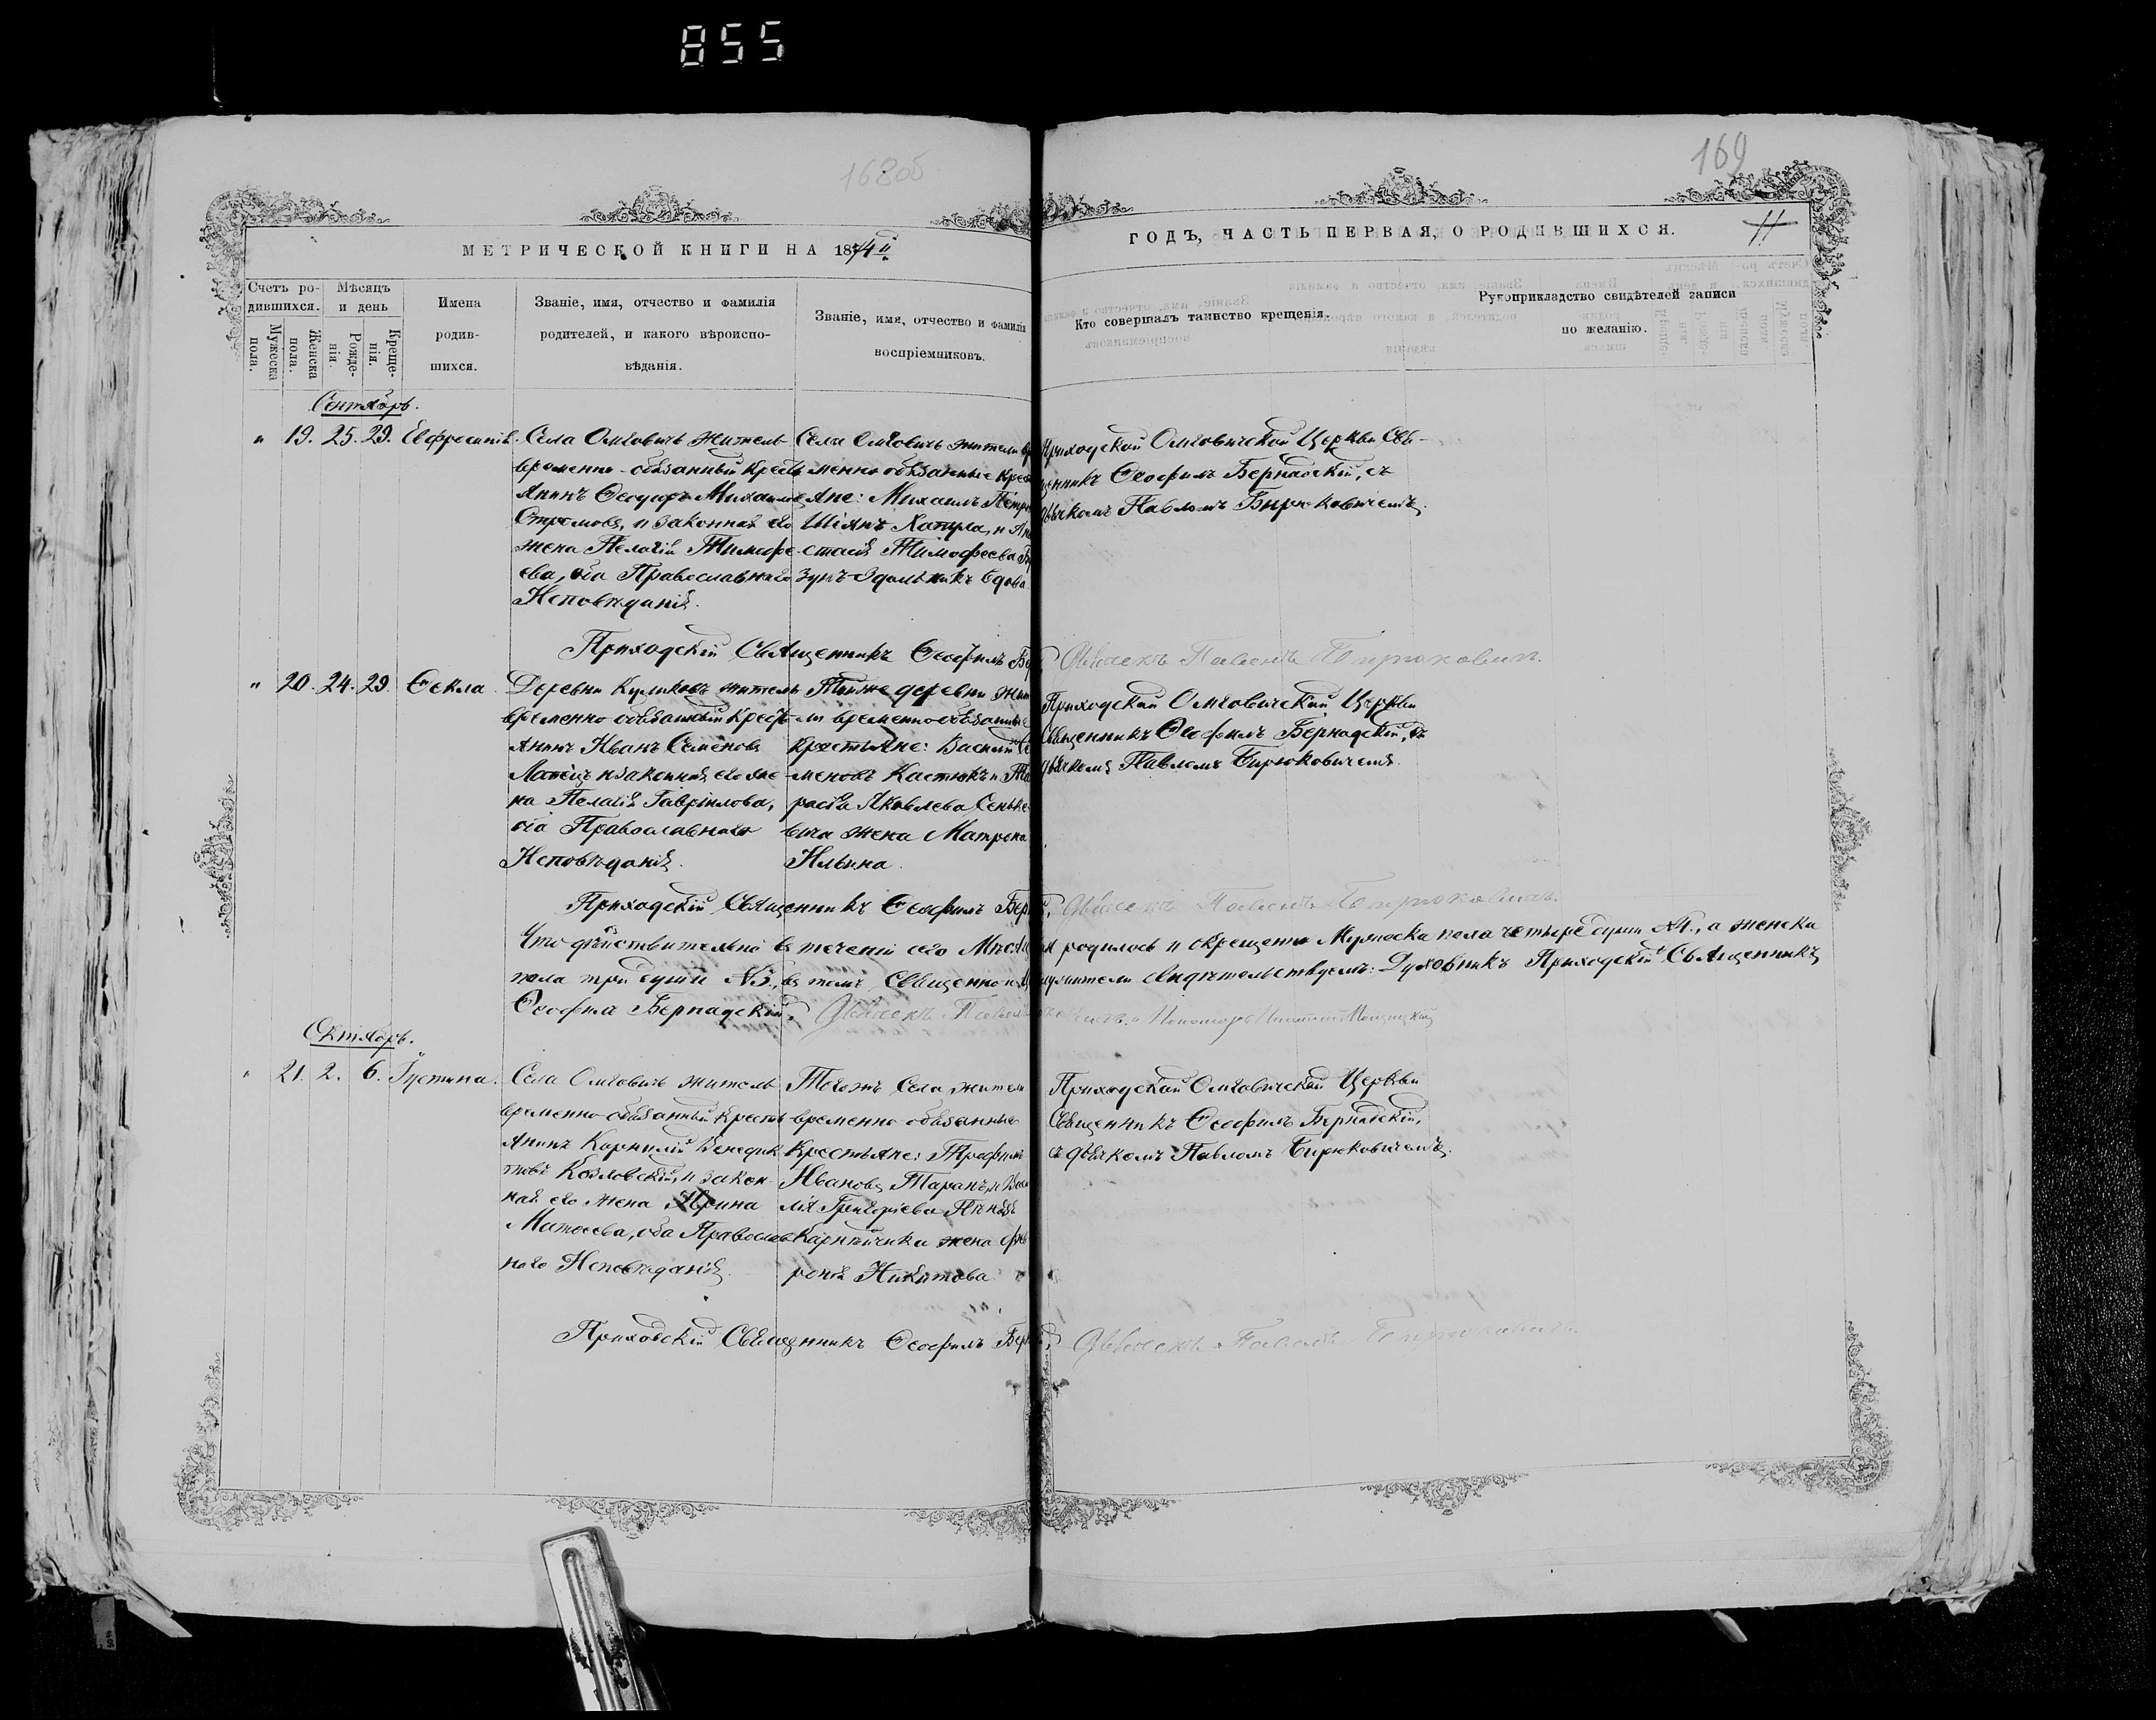 855
168об
169
МЕТРИЧЕСКОЙ КНИГИ НА 1874й
ГОДЪ, ЧАСТЬ ПЕРВАЯ, О РОДИВШИХСЯ.
11
Счетъ родившихся.
Мужеска пола.
Женска пола.
Мѣсяцъ и день
Рожденія.
Крещенія.
Имена
родив-
шихся.
Званіе, имя, отчество и фамилія
родителей, и какого вѣроиспо-
вѣданія.
Званіе, имя, отчество и фамилія
воспріемниковъ.
Кто совершалъ таинство крещенія.
Рукоприкладство свидѣтелей записи
по желанію.
Сентябрь.
" 19. 25. 29.
Села Омговичъ житель
временно-обязанный Кресть
янинъ Ѳеодоръ
и законная его
жена Пелагія Тимофе
ева, оба Православнаго
Исповѣданія.
Села Омговичъ жители вре
менно обязанные Крес
яне: Михаилъ Петр
и Ана
стасія Тимофеева
Вдова
Приходской Омговичской Церкви Свя-
щенникъ Ѳеофилъ Бернадскій, съ
дьячкомъ Павломъ Бирюковичемъ.
Приходскій Священникъ Ѳеофилъ Бер
Дьячекъ Павелъ Бирюковичъ.
" 20. 24. 29. Ѳекла
Деревни Куликовъ житель
временно обязанный Кресть
янинъ Иванъ Семеновъ
и законная его же
на Пелагія Гавріилова,
оба Православнаго
Исповѣданія.
Тойже деревни жит
ли временно обязанные
крестьяне: Василій Се
меновъ Костюкъ и
Яковлева
вича жена Матрона
Ильина.
Приходской Омговичской Церкви
Священникъ Ѳеофилъ Бернадскій, съ
дьячкомъ Павломъ Бирюковичемъ.
Приходскій Священникъ Ѳеофилъ Бер
Дьячекъ Павелъ Бирюковичъ.
Что дѣйствительно въ теченіи сего Мѣсяца родилось и окрещенно Мужеска пола четыре души №4., а женска
пола три души №3., въ томъ Священно и Церковнослужители свидѣтельствуемъ: Духовникъ Приходскій Священникъ
Ѳеофилъ Бернадскій, Дьячекъ Павелъ Пономарь
Октябрь.
" 21. 2. 6. Іустина.
Села Омговичъ житель
временно-обязанный Кресть
янинъ Корнилій Венедик
товъ Козловскій, и закон
ная его жена Ирина
Матѳеева, оба Православ
наго Исповѣданія.
Тогожъ Села жители
временно обязанные
Крестьяне: Трофимъ
Ивановъ Таранъ, и
Григоріева
жена Фев
ронія Никитова
Приходской Омговичской Церкви
Священникъ Ѳеофилъ Бернадскій,
съ дьячкомъ Павломъ Бирюковичемъ.
Приходскій Священникъ Ѳеофилъ Бер
Дьячекъ Павелъ Бирюковичъ.